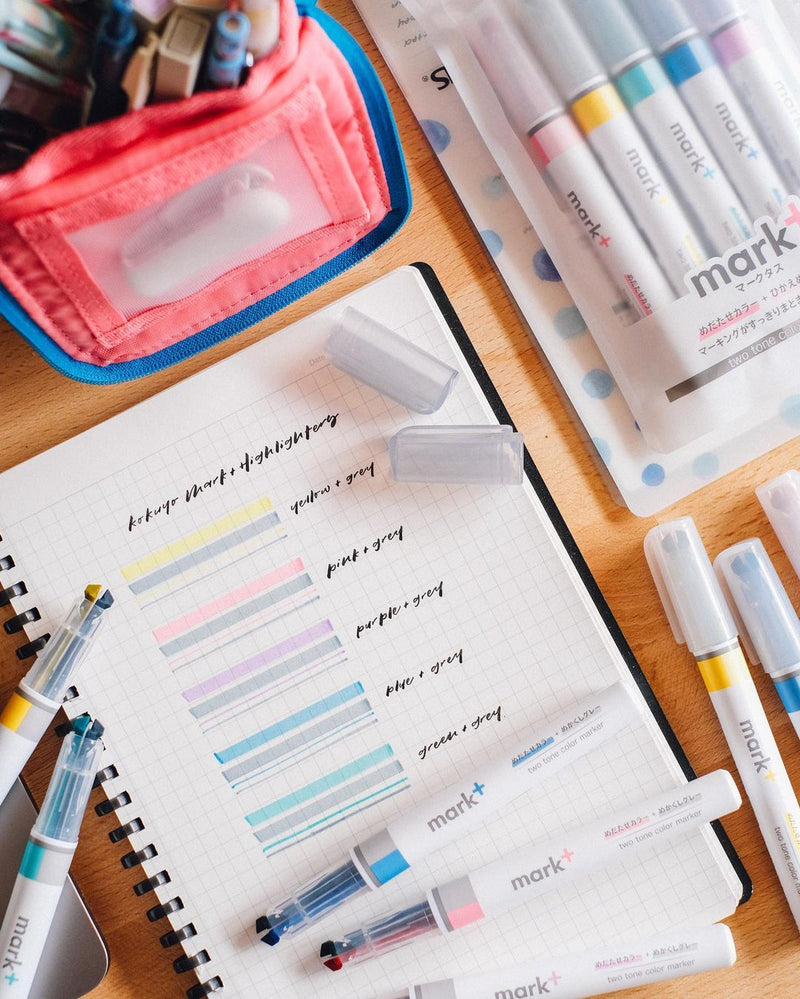 mark+
mark+
mark+
mark+
mark+
マークタス
めだたせカラー + ひかえめ
マーキングがすっきりまとま
two tone color
Date
kokuyo Mark+ Highlighters
yellow + grey
pink + grey
purple + grey
blue + grey
green + grey
めだたせカラー + めかくしグレー
two tone color marker
mark+
めだたせカラー + めかくしグレー
two tone color marker
mark+
めだたせカラー + めかくしグレー
two tone color marker
mark+
mark+
two tone color marker
mark+